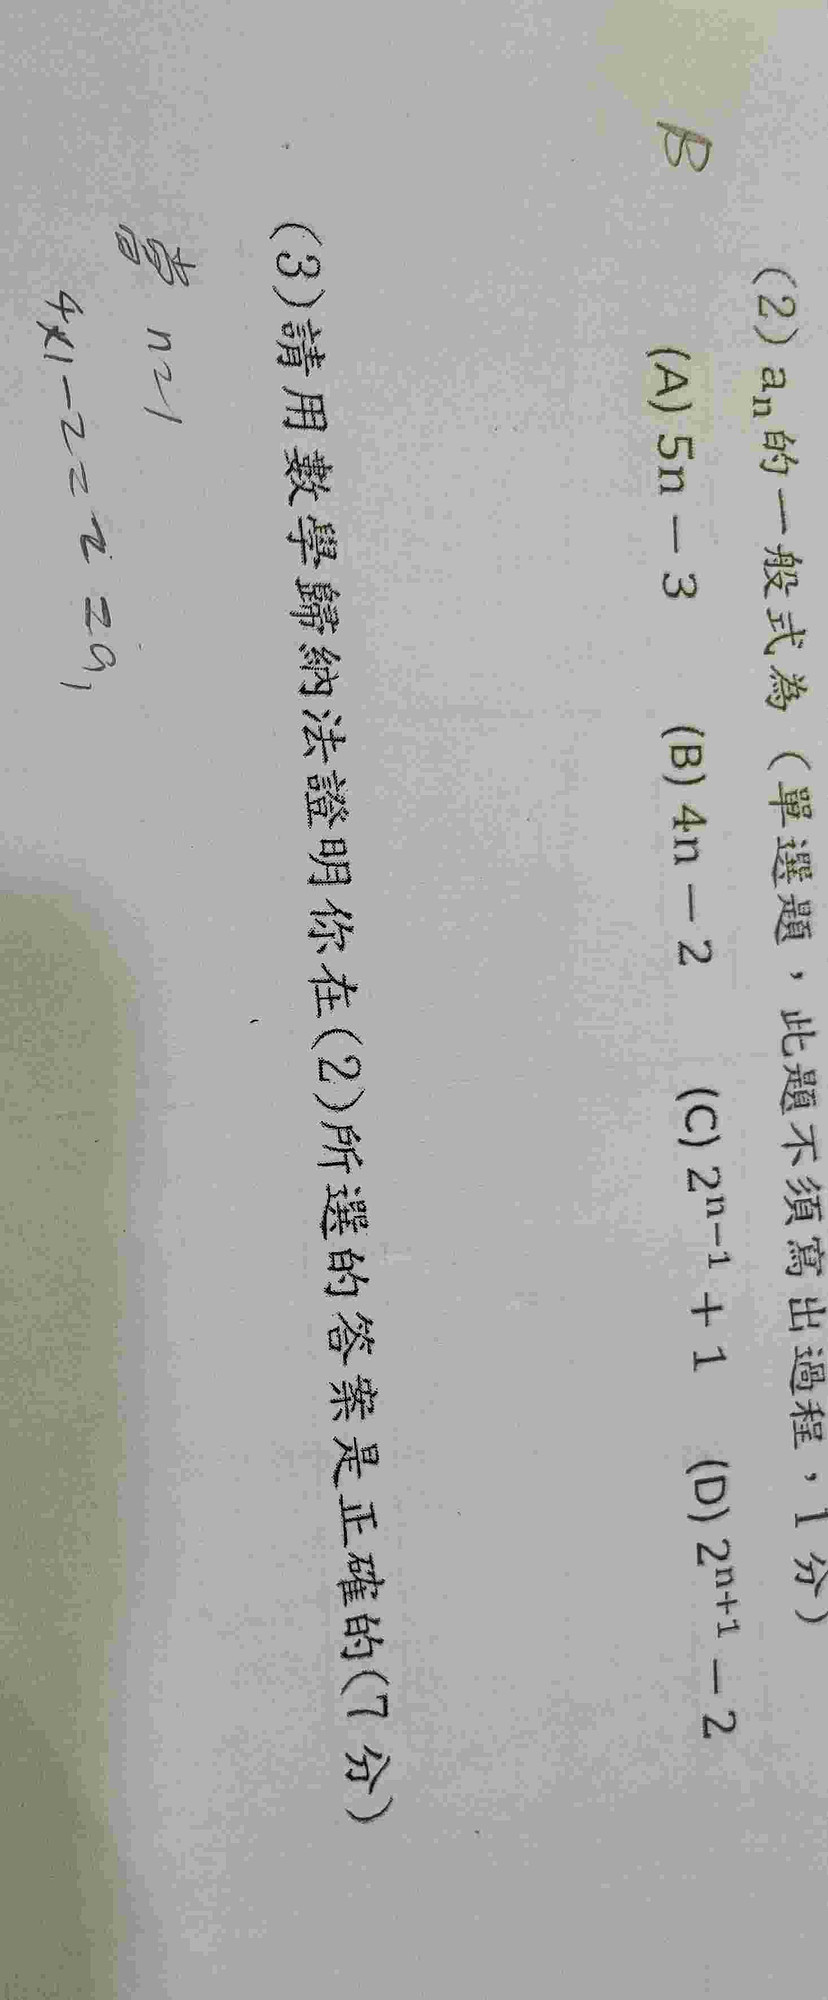 (2) aₙ的一般式為（單選題，此題不須寫出過程，1分）
B (A) 5n − 3 (B) 4n − 2 (C) 2ⁿ⁻¹ + 1 (D) 2ⁿ⁺¹ − 2
(3)請用數學歸納法證明你在(2)所選的答案是正確的(7分)
當 n=1
4×1−2=2=a₁